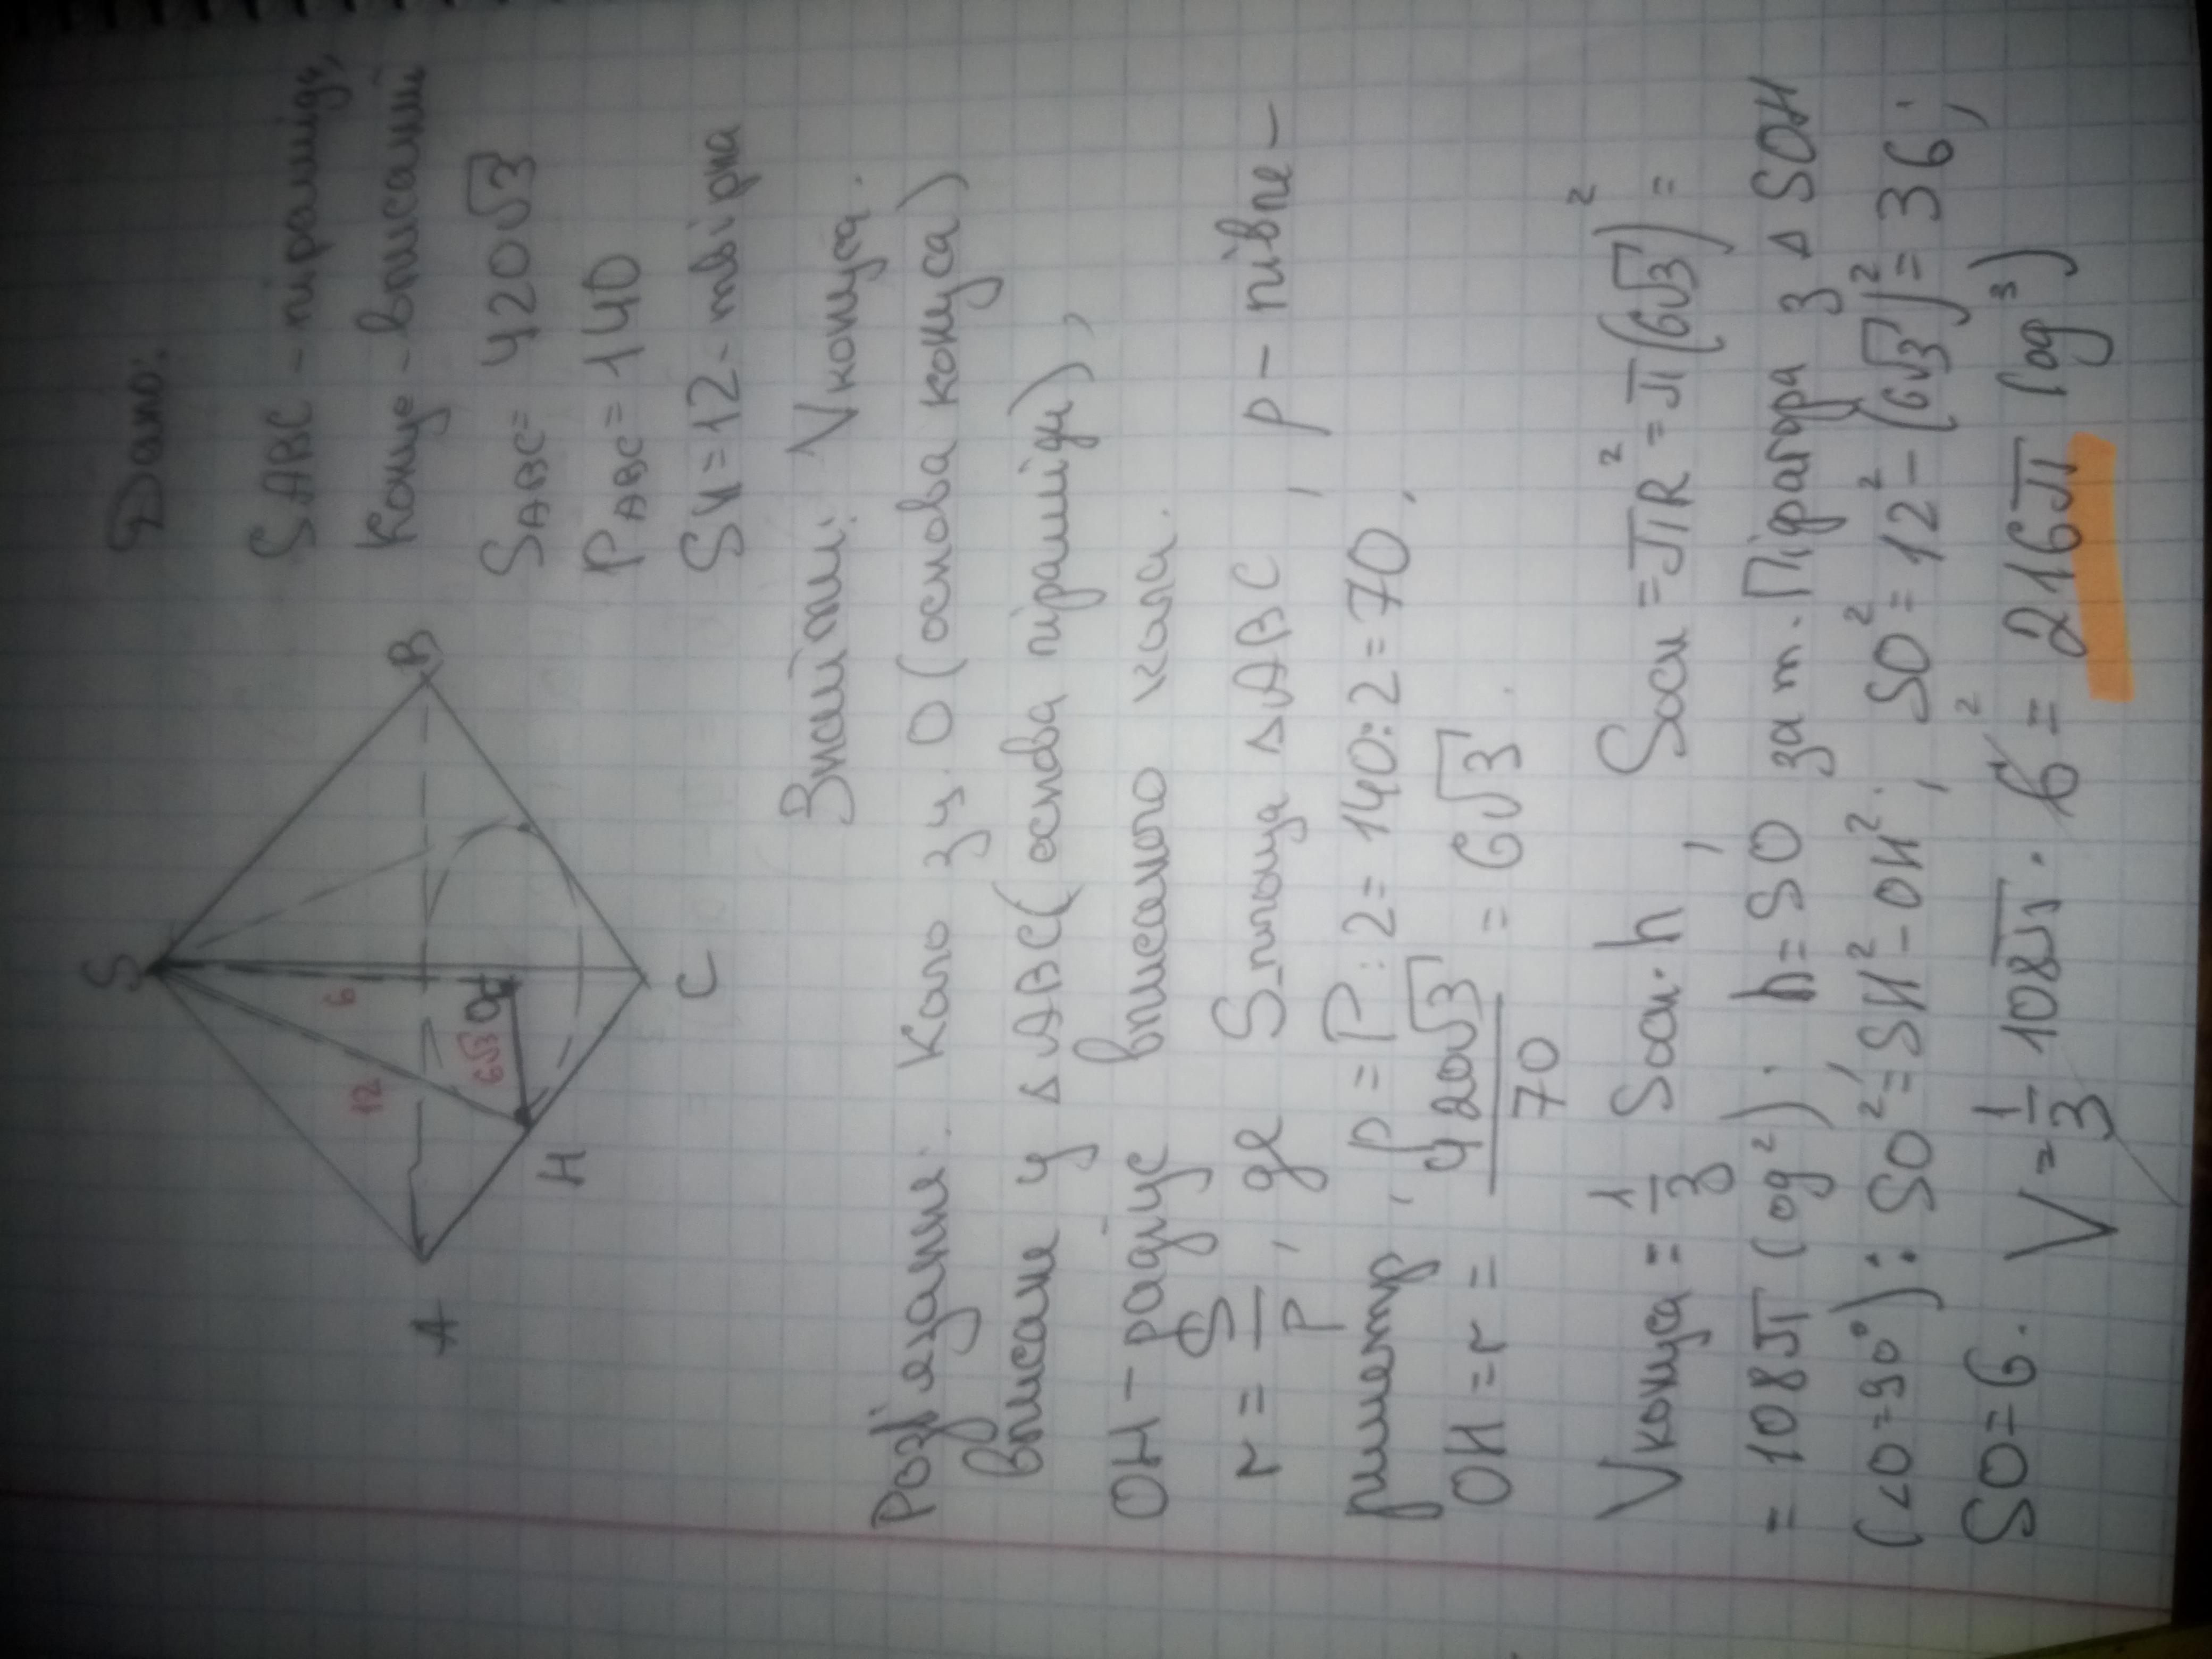 S
A
B
C
H
O
12
6
6√3
Дано:
SABC - піраміда,
Конус - вписаний
S ABC = 420√3
P ABC = 140
SH = 12 - твірна
Знайти: V конуса.
Розв'язання. Коло з ц. O (основа конуса)
вписане у △ABC (основа піраміди),
OH - радіус вписаного кола.
r = S/p, де S - площа △ABC, p - півпе-
риметр, p = P:2 = 140:2 = 70,
OH = r = 420√3/70 = 6√3.
V конуса = 1/3 Sосн·h, Sосн = πR² = π(6√3)² =
= 108π (од²). h = SO за т. Піфагора з △SOH
(∠O=90°): SO² = SH² - OH², SO² = 12² - (6√3)² = 36;
SO = 6. V = 1/3 108π · 6 2 = 216π (од³)